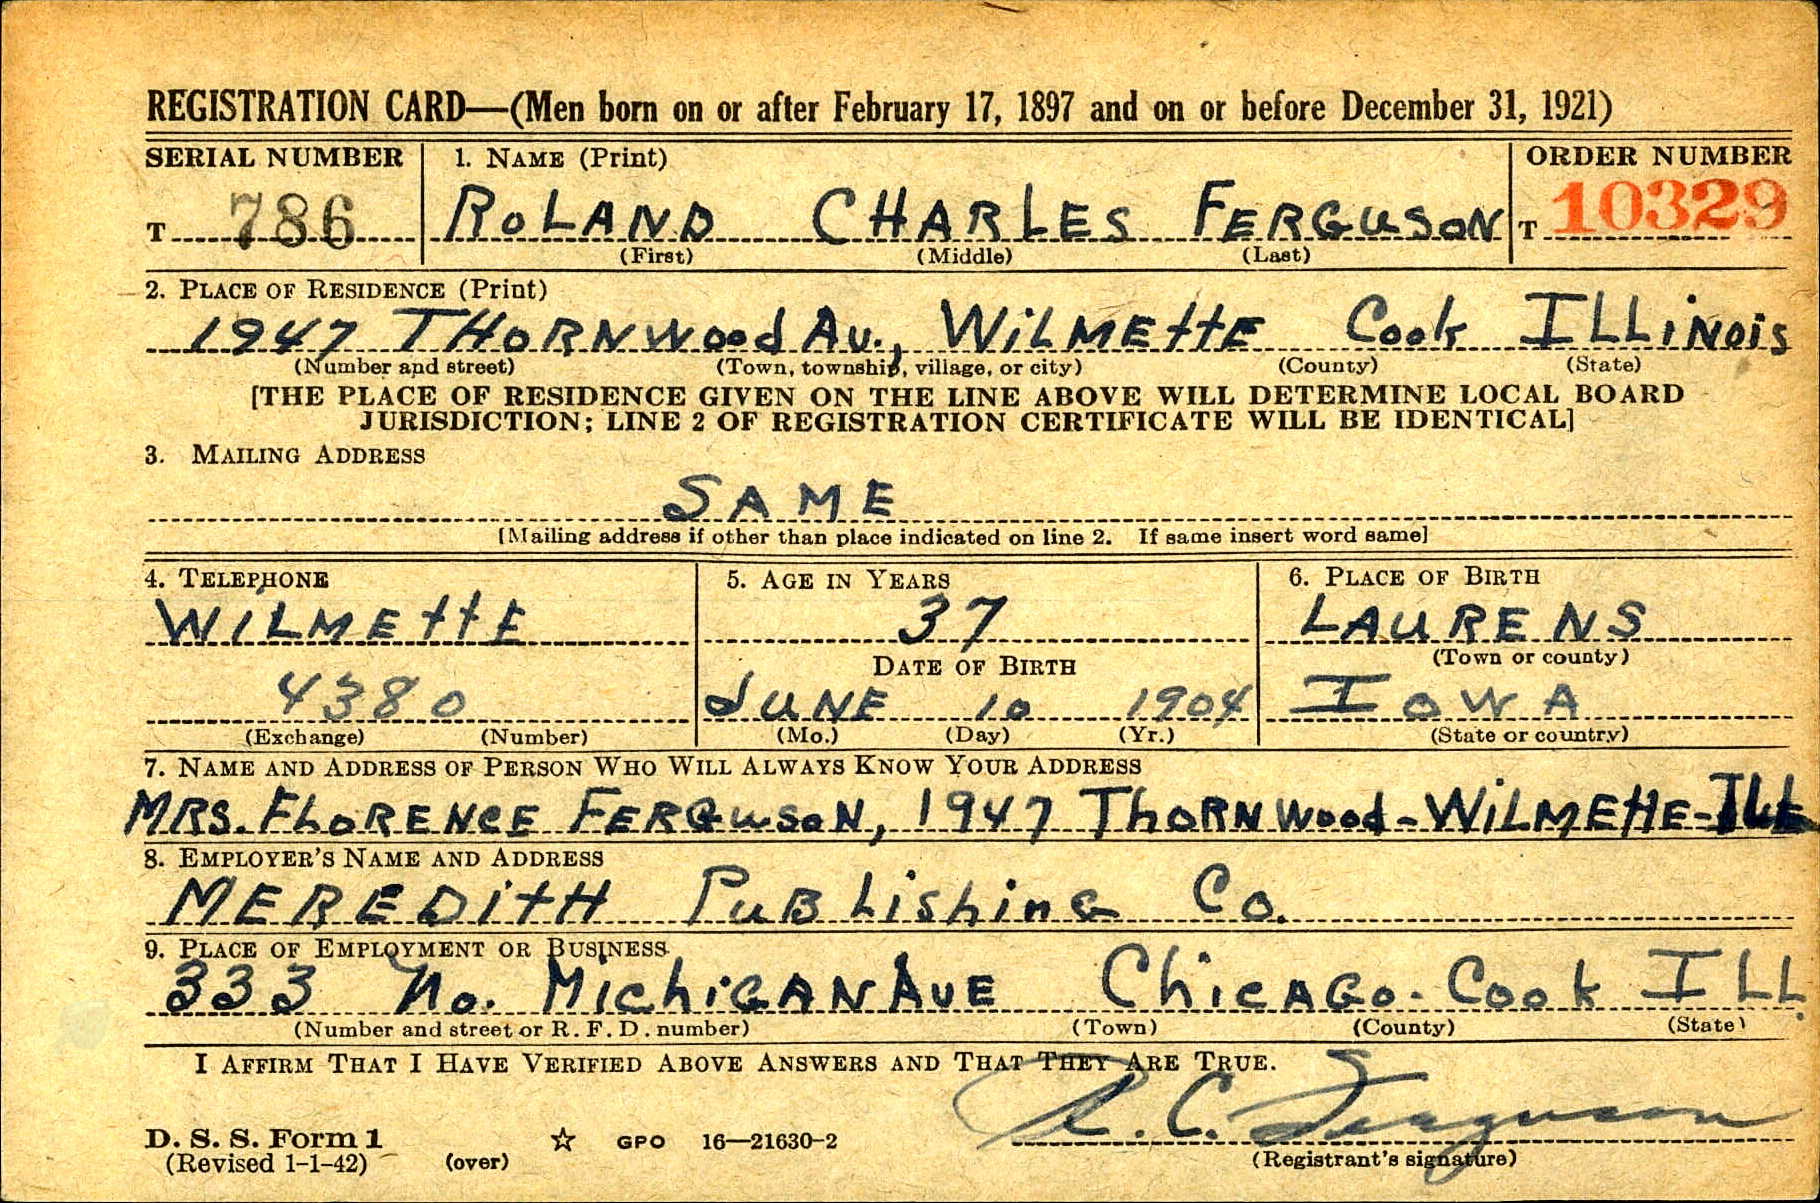 REGISTRATION CARD—(Men born on or after February 17, 1897 and on or before December 31, 1921)
SERIAL NUMBER 1. NAME (Print) ORDER NUMBER
T 786 ROLAND CHARLES FERGUSON T 10329
(First) (Middle) (Last)
2. PLACE OF RESIDENCE (Print)
1947 THORNWOOD AV., WILMETTE COOK ILLINOIS
(Number and street) (Town, township, village, or city) (County) (State)
[THE PLACE OF RESIDENCE GIVEN ON THE LINE ABOVE WILL DETERMINE LOCAL BOARD
JURISDICTION; LINE 2 OF REGISTRATION CERTIFICATE WILL BE IDENTICAL]
3. MAILING ADDRESS
SAME
[Mailing address if other than place indicated on line 2. If same insert word same]
4. TELEPHONE 5. AGE IN YEARS 6. PLACE OF BIRTH
WILMETTE 37 LAURENS
DATE OF BIRTH (Town or county)
4380 JUNE 10 1904 IOWA
(Exchange) (Number) (Mo.) (Day) (Yr.) (State or country)
7. NAME AND ADDRESS OF PERSON WHO WILL ALWAYS KNOW YOUR ADDRESS
MRS. FLORENCE FERGUSON, 1947 THORNWOOD-WILMETTE-ILL
8. EMPLOYER'S NAME AND ADDRESS
MEREDITH PUBLISHING CO.
9. PLACE OF EMPLOYMENT OR BUSINESS
333 No. MICHIGAN AVE CHICAGO. COOK ILL.
(Number and street or R. F. D. number) (Town) (County) (State)
I AFFIRM THAT I HAVE VERIFIED ABOVE ANSWERS AND THAT THEY ARE TRUE.
R. C. Ferguson
D. S. S. Form 1 ☆ GPO 16—21630-2
(Revised 1-1-42) (over) (Registrant's signature)